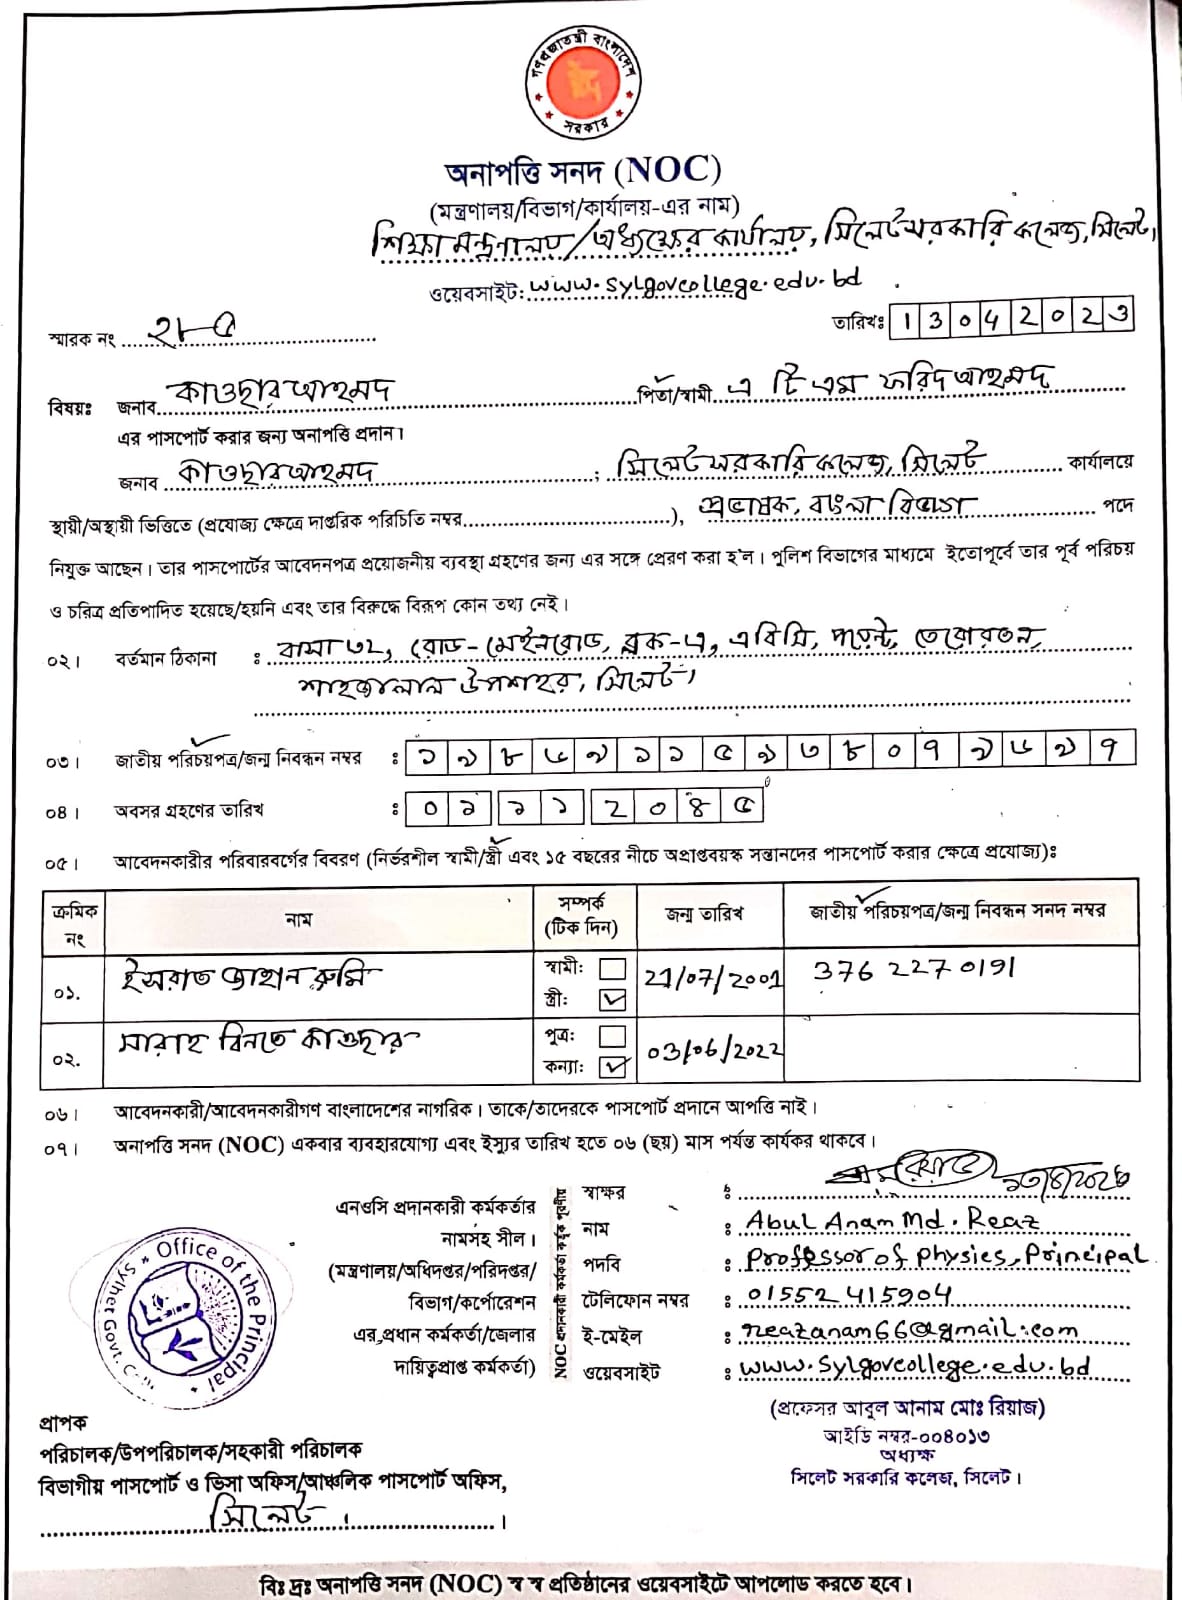 গণপ্রজাতন্ত্রী বাংলাদেশ
সরকার
অনাপত্তি সনদ (NOC)
(মন্ত্রণালয়/বিভাগ/কার্যালয়-এর নাম)
শিক্ষা মন্ত্রণালয়/অধ্যক্ষের কার্যালয়, সিলেট সরকারি কলেজ, সিলেট।
ওয়েবসাইট: www.sylgovcollege.edu.bd
স্মারক নং ২৮৫ তারিখঃ 13042023
বিষয়ঃ জনাব কাওছার আহমদ পিতা/স্বামী এ টি এম ফরিদ আহমদ
এর পাসপোর্ট করার জন্য অনাপত্তি প্রদান।
জনাব কাওছার আহমদ ; সিলেট সরকারি কলেজ, সিলেট কার্যালয়ে
স্থায়ী/অস্থায়ী ভিত্তিতে (প্রযোজ্য ক্ষেত্রে দাপ্তরিক পরিচিতি নম্বর....................), প্রভাষক, বাংলা বিভাগ পদে
নিযুক্ত আছেন। তার পাসপোর্টের আবেদনপত্র প্রয়োজনীয় ব্যবস্থা গ্রহণের জন্য এর সঙ্গে প্রেরণ করা হ'ল। পুলিশ বিভাগের মাধ্যমে ইতোপূর্বে তার পূর্ব পরিচয়
ও চরিত্র প্রতিপাদিত হয়েছে/হয়নি এবং তার বিরুদ্ধে বিরূপ কোন তথ্য নেই।
০২। বর্তমান ঠিকানা : বাসা ৩২, রোড-মেইনরোড, ব্লক-এ, এবিসি, পয়েন্ট, তেরোরতন,
শাহজালাল উপশহর, সিলেট।
০৩। জাতীয় পরিচয়পত্র/জন্ম নিবন্ধন নম্বর : ১৯৮৬৯১১৫১৩৮০৭৯৬৯৭
০৪। অবসর গ্রহণের তারিখ : ০১ ১১ ২০৪৫
০৫। আবেদনকারীর পরিবারবর্গের বিবরণ (নির্ভরশীল স্বামী/স্ত্রী এবং ১৫ বছরের নীচে অপ্রাপ্তবয়স্ক সন্তানদের পাসপোর্ট করার ক্ষেত্রে প্রযোজ্য)ঃ
ক্রমিক নং নাম সম্পর্ক (টিক দিন) জন্ম তারিখ জাতীয় পরিচয়পত্র/জন্ম নিবন্ধন সনদ নম্বর
০১. ইসরাত জাহান রুমি স্বামী: স্ত্রী: 21/07/2001 376 227 0191
০২. সারাহ বিনতে কাওছার পুত্র: কন্যা: 03/06/2022
০৬। আবেদনকারী/আবেদনকারীগণ বাংলাদেশের নাগরিক। তাকে/তাদেরকে পাসপোর্ট প্রদানে আপত্তি নাই।
০৭। অনাপত্তি সনদ (NOC) একবার ব্যবহারযোগ্য এবং ইস্যুর তারিখ হতে ০৬ (ছয়) মাস পর্যন্ত কার্যকর থাকবে।
এনওসি প্রদানকারী কর্মকর্তার
নামসহ সীল।
(মন্ত্রণালয়/অধিদপ্তর/পরিদপ্তর/
বিভাগ/কর্পোরেশন
এর প্রধান কর্মকর্তা/জেলার
দায়িত্বপ্রাপ্ত কর্মকর্তা)
NOC প্রদানকারী কর্মকর্তা কর্তৃক পূরণীয়
স্বাক্ষর : ১৩/৪/২০২৩
নাম : Abul Anam Md. Reaz
পদবি : Professor of Physics, Principal
টেলিফোন নম্বর : 01552415904
ই-মেইল : reazanam66@gmail.com
ওয়েবসাইট : www.sylgovcollege.edu.bd
Office of the Principal
Sylhet Govt.
(প্রফেসর আবুল আনাম মোঃ রিয়াজ)
আইডি নম্বর-০০৪০১৩
অধ্যক্ষ
সিলেট সরকারি কলেজ, সিলেট।
প্রাপক
পরিচালক/উপপরিচালক/সহকারী পরিচালক
বিভাগীয় পাসপোর্ট ও ভিসা অফিস/আঞ্চলিক পাসপোর্ট অফিস,
সিলেট।
বিঃ দ্রঃ অনাপত্তি সনদ (NOC) স্ব স্ব প্রতিষ্ঠানের ওয়েবসাইটে আপলোড করতে হবে।